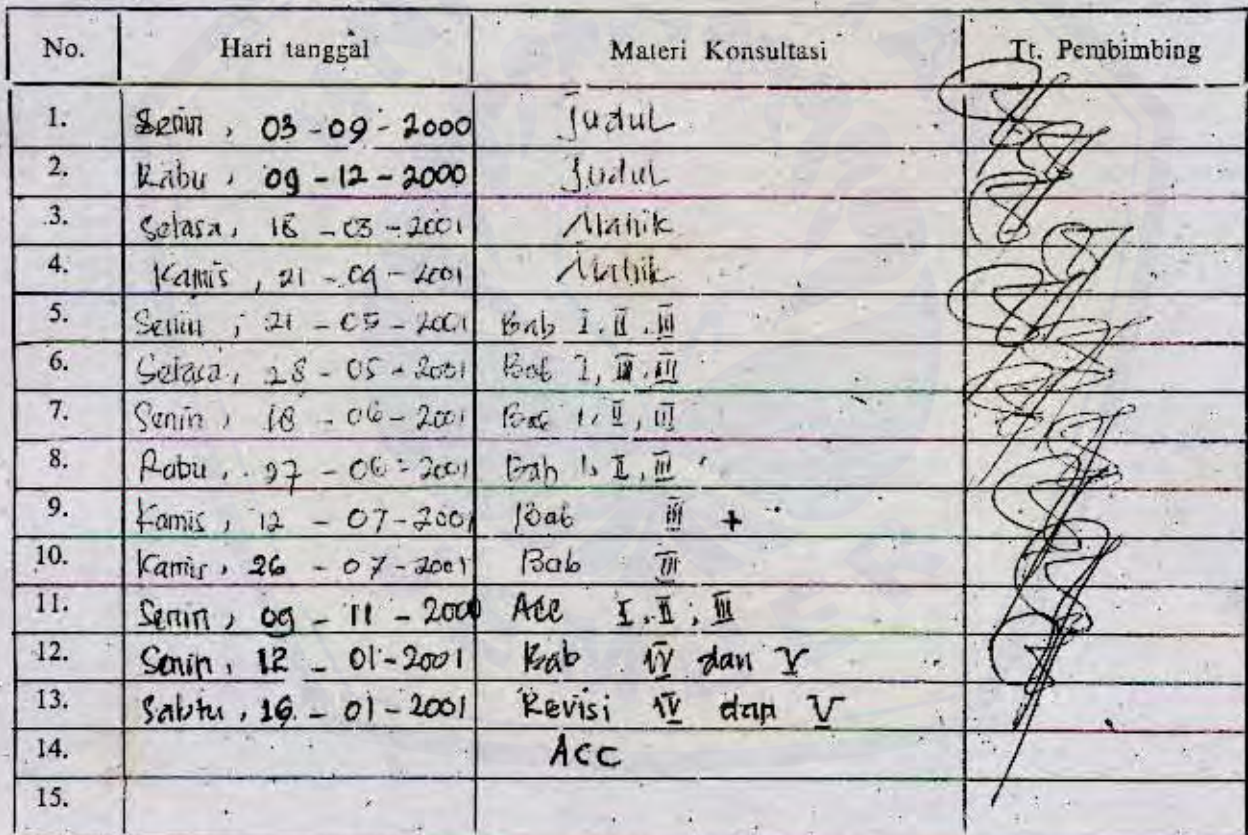 No. Hari tanggal Materi Konsultasi Tt. Pembimbing
1. Senin, 03-09-2000 Judul
2. Rabu, 09-12-2000 Judul
3. Selasa, 18-03-2001
4. Kamis, 21-04-2001
5. Senin, 21-05-2001 Bab I, II, III
6. Selasa, 28-05-2001 Bab I, II, III
7. Senin, 18-06-2001 Bab I, II, III
8. Rabu, 27-06-2001 Bab I, II, III
9. Kamis, 12-07-2001 Bab III +
10. Kamis, 26-07-2001 Bab III
11. Senin, 09-11-2000 Acc I, II, III
12. Senin, 12-01-2001 Bab IV dan V
13. Sabtu, 19-01-2001 Revisi IV dan V
14. ACC
15.